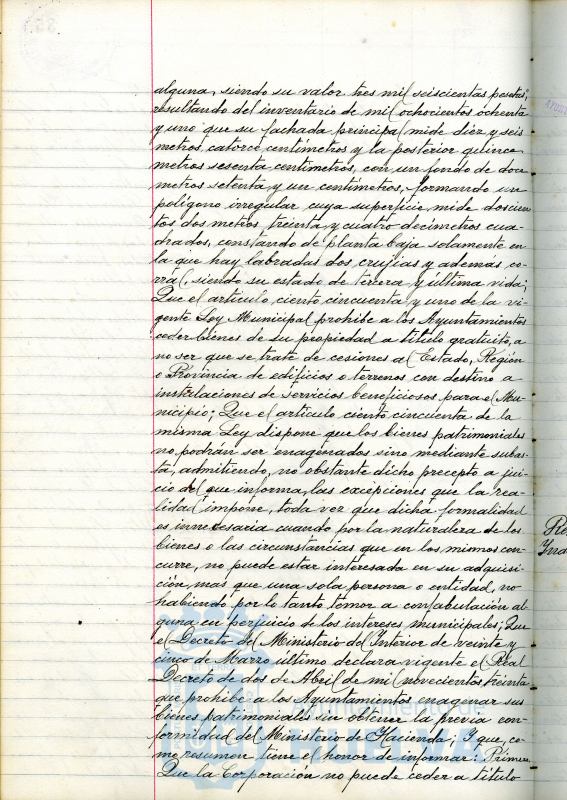 alguna, siendo su valor tres mil seiscientas pesetas;
resultando del inventario de mil ochocientos ochenta
y uno que su fachada principal mide diez y seis
metros catorce centímetros y la posterior quince
metros sesenta centímetros, con un fondo de doce
metros setenta y un centímetros, formando un
polígono irregular cuya superficie mide doscien
tos dos metros, treinta y cuatro decímetros cua-
drados, constando de planta baja solamente en
la que hay labradas dos crujías y además co-
rral, siendo su estado de tercera y última vida;
Que el artículo ciento cincuenta y uno de la vi-
gente Ley Municipal prohibe a los Ayuntamientos
ceder bienes de su propiedad a título gratuito, a
no ser que se trate de cesiones al Estado, Región
o Provincia de edificios o terrenos con destino a
instalaciones de servicios beneficiosos para el Mu-
nicipio; Que el artículo ciento cincuenta de la
misma Ley dispone que los bienes patrimoniales
no podrán ser enagenados sino mediante subas-
ta, admitiendo, no obstante dicho precepto a jui-
cio del que informa, las excepciones que la rea-
lidad impone, toda vez que dicha formalidad
es innecesaria cuando por la naturaleza de los
bienes o las circunstancias que en los mismos con-
curre, no puede estar interesada en su adquisi-
ción, mas que una sola persona o entidad, no
habiendo por lo tanto temor a confabulación al
guna en perjuicio de los intereses municipales; Que
el Decreto del Ministerio del Interior de veinte y
cinco de Marzo último declara vigente el Real
Decreto de dos de Abril de mil novecientos treinta
que prohibe a los Ayuntamientos enagenar sus
bienes patrimoniales sin obtener la previa con-
formidad del Ministerio de Hacienda; Y que, co-
mo resumen tiene el honor de informar: Primero
Que la Corporación no puede ceder a título
Ayuntamiento de
HUELVA